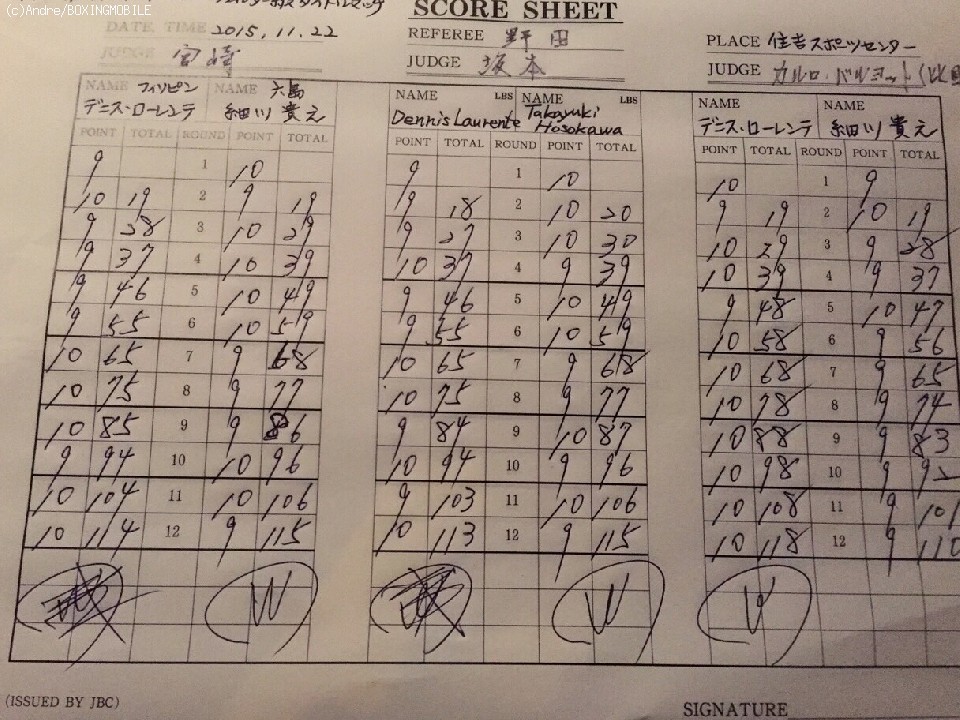 (c)Andre/BOXINGMOBILE
SCORE SHEET
DATE. TIME 2015, 11. 22
REFEREE 野田
PLACE 住吉スポーツセンター
JUDGE 宮崎
JUDGE 坂本
JUDGE カルロ・
NAME フィリピン NAME 六島
デニス・ローレンテ 細川 貴之
NAME LBS NAME LBS
Dennis Laurente Takayuki Hosokawa
NAME NAME
デニス・ローレンテ 細川 貴之
POINT TOTAL ROUND POINT TOTAL POINT TOTAL ROUND POINT TOTAL POINT TOTAL ROUND POINT TOTAL
9 1 10 9 1 10 10 1 9
10 19 2 9 19 9 18 2 10 20 9 19 2 10 19
9 28 3 10 29 9 27 3 10 30 10 29 3 9 28
9 37 4 10 39 10 37 4 9 39 10 39 4 9 37
9 46 5 10 49 9 46 5 10 49 9 48 5 10 47
9 55 6 10 59 9 55 6 10 59 10 58 6 9 56
10 65 7 9 68 10 65 7 9 68 10 68 7 9 65
10 75 8 9 77 10 75 8 9 77 10 78 8 9 74
10 85 9 9 86 9 84 9 10 87 10 88 9 9 83
9 94 10 10 96 10 94 10 9 96 10 98 10 9 92
10 104 11 10 106 9 103 11 10 106 10 108 11 9 101
10 114 12 9 115 10 113 12 9 115 10 118 12 9 110
W W W
(ISSUED BY JBC)
SIGNATURE